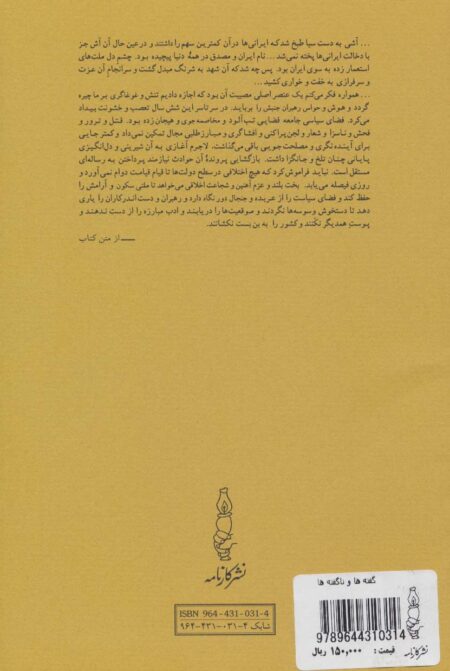 ... آشی به دست سیا طبخ شد که ایرانی‌ها در آن کمترین سهم را داشتند و در عین حال آن آش جز
با دخالت ایرانی‌ها پخته نمی‌شد ... نام ایران و مصدق در همهٔ دنیا پیچیده بود. چشم دل ملت‌های
استعمار زده به سوی ایران بود. پس چه شد که آن شهد به شرنگ مبدل گشت و سرانجام آن عزت
و سرفرازی به خفت و خواری کشید ...
... همواره فکر می‌کنم یک عنصر اصلی مصیبت آن بود که اجازه دادیم تنش و غوغاگری بر ما چیره
گردد و هوش و حواس رهبران جنبش را برباید. در سرتاسر این شش سال تعصب و خشونت بیداد
می‌کرد. فضای سیاسی جامعه فضایی تب‌آلود و مخاصمه‌جوی و هیجان‌زده بود. قتل و ترور و
فحش و ناسزا و شعار و لجن‌پراکنی و افشاگری و مبارزطلبی مجال تمکین نمی‌داد و کمتر جایی
برای آینده‌نگری و مصلحت‌جویی باقی می‌گذاشت. لاجرم آغازی به آن شیرینی و دل‌انگیزی
پایانی چنان تلخ و جانگزا داشت. بازگشایی پروندهٔ آن حوادث نیازمند پرداختن به رساله‌ای
مستقل است. نباید فراموش کرد که هیچ اختلافی در سطح دولت‌ها تا قیام قیامت دوام نمی‌آورد و
روزی فیصله می‌یابد. بخت بلند و عزم آهنین و شجاعت اخلاقی می‌خواهد تا ملتی سکون و آرامش را
حفظ کند و فضای سیاست را از عربده و جنجال دور نگاه دارد و رهبران و دست‌اندرکاران را یاری
دهد تا دستخوش وسوسه‌ها نگردند و موقعیت‌ها را دریابند و ادب مبارزه را از دست ندهند و
پوست همدیگر نکنند و کشور را به بن‌بست نکشانند.
ــــ از متن کتاب
نشر کارنامه
ISBN 964-431-031-4
شابک ۴-۰۳۱-۴۳۱-۹۶۴
گفته ها و ناگفته ها
9789644310314
قیمت: ۱۵۰,۰۰۰ ریال
نشر کارنامه